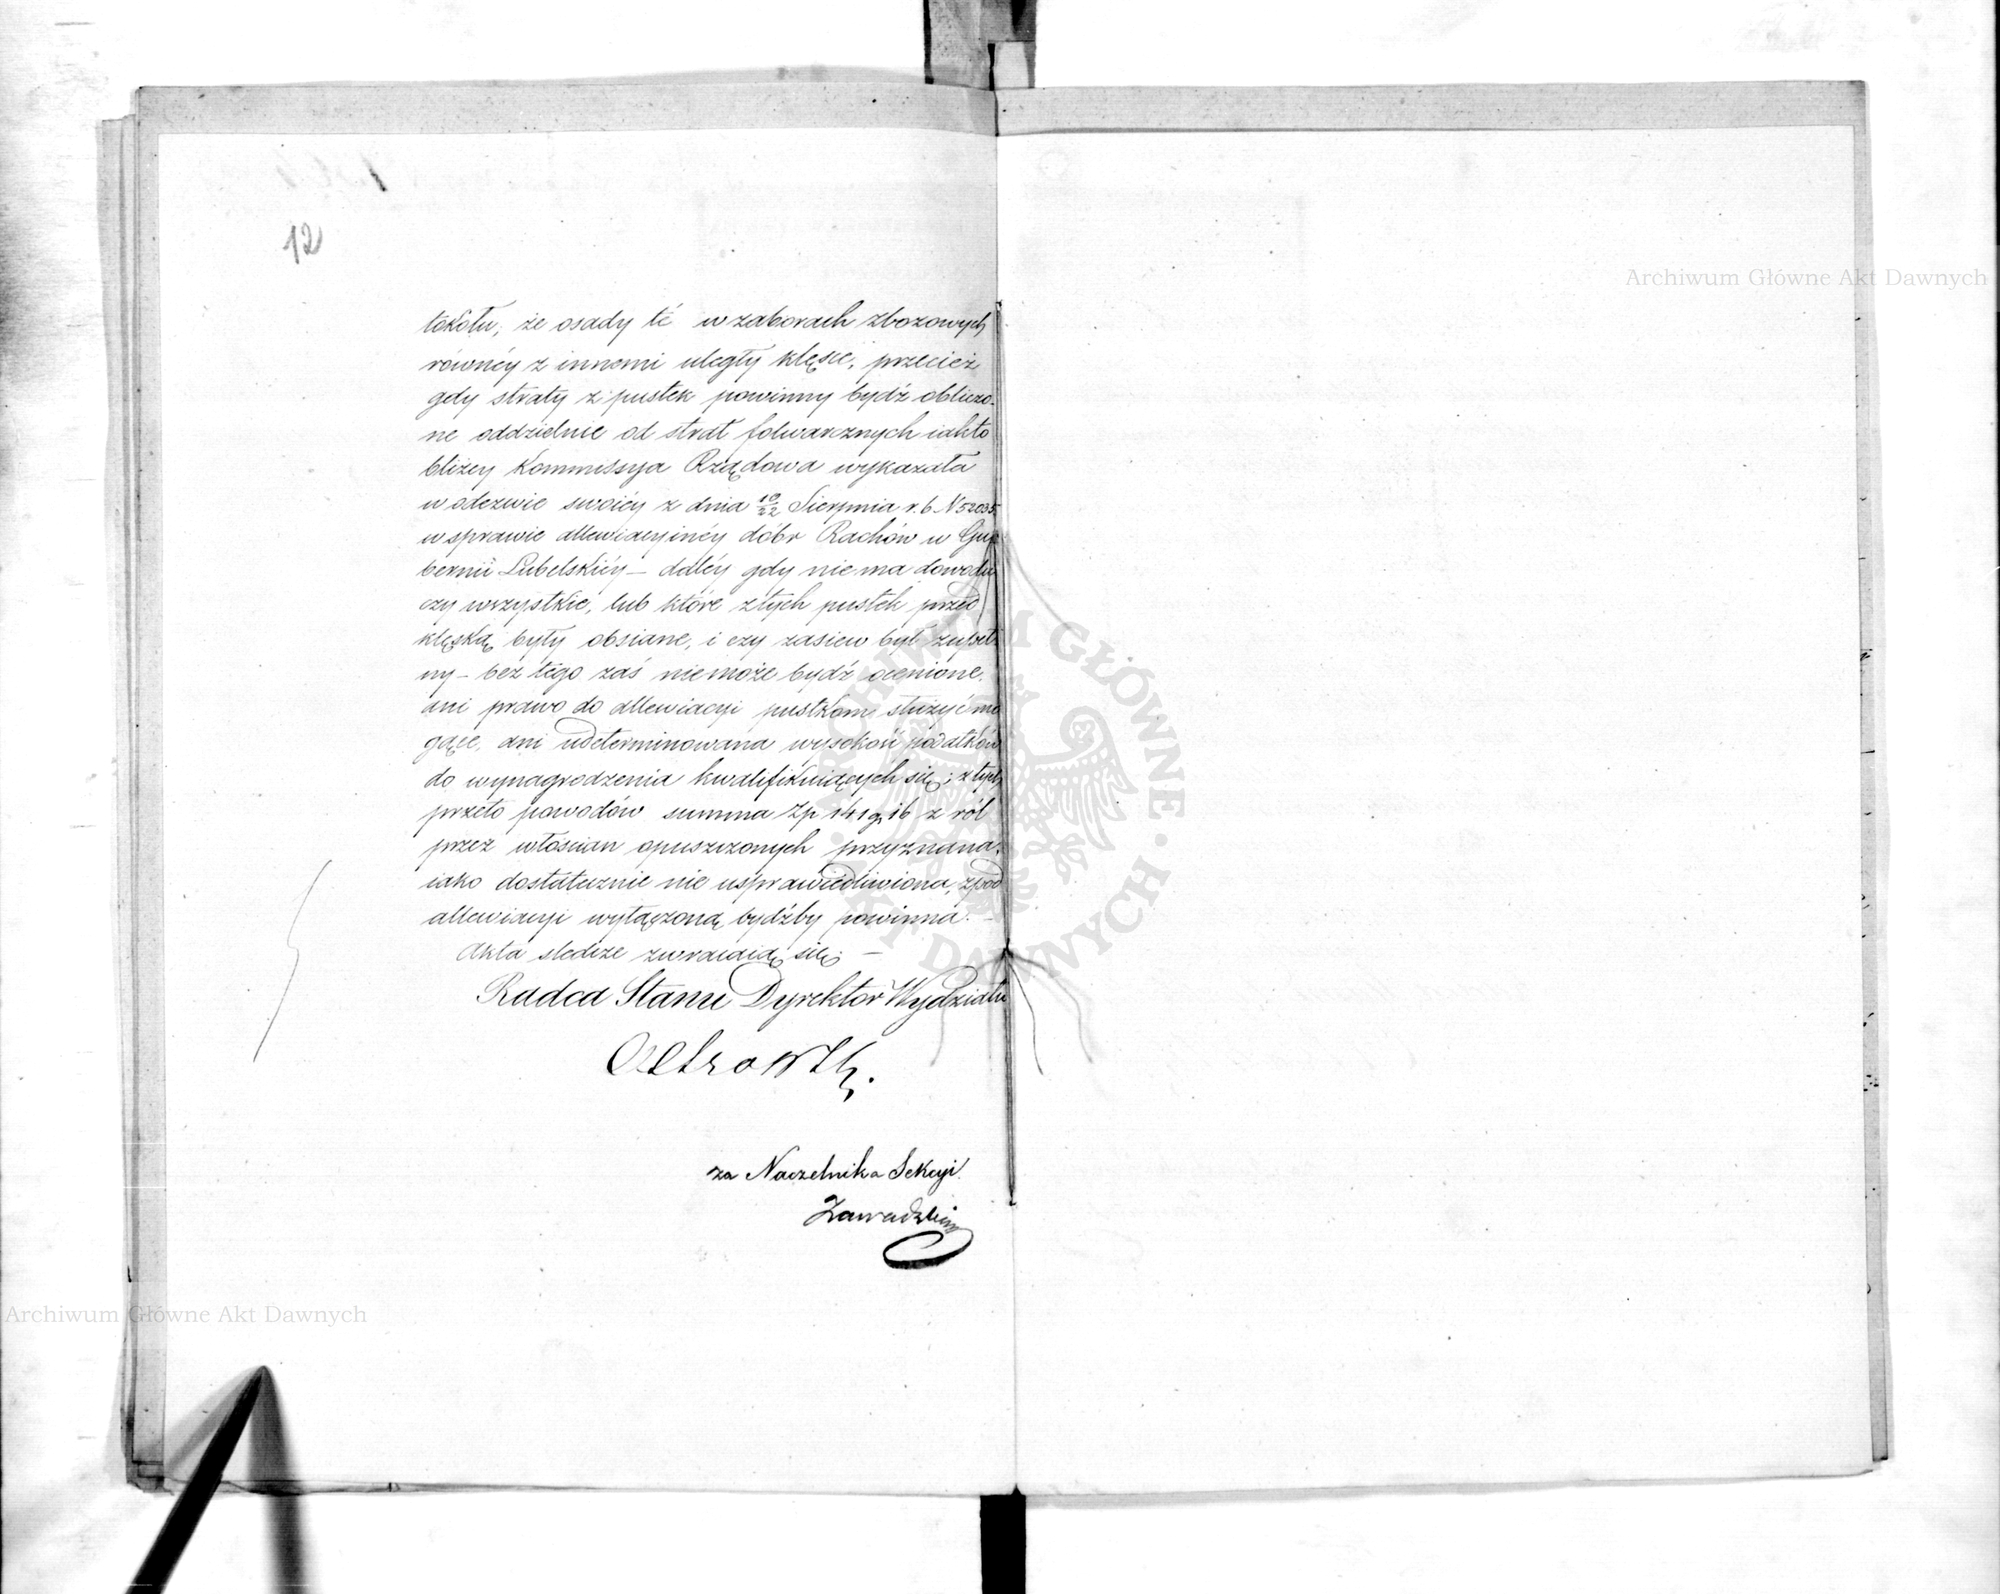 12
tokółu, że osady té w zaborach zbożowych
równéy z innemi uległy klęsce, przecież
gdy straty z pustek powinny bydź obliczo-
ne oddzielnie od strat folwarcznych iak to
bliżey Kommissya Rządowa wykazała
w odezwie swoiéy z dnia 10/22 Sierpnia r. b. N 52035
w sprawie allewiacyinéy dóbr Rachów w Gu-
bernii Lubelskiéy – daléy gdy nie ma dowodu
czy wszystkie, lub które z tych pustek przed
klęską były obsiane, i czy zasiew był zupeł-
ny – bez tego zaś nie może bydź ocenione,
ani prawo do allewiacyi pustkom służyć mo
gące, ani udeterminowana wysokość podatków
do wynagrodzenia kwalifikuiących się; z tych
przeto powodów summa Zp 141 g. 16 z ról
przez włościan opuszczonych przyznana,
iako dostatecznie nie usprawiedliwiona, z pod
allewiacyi wyłączoną bydźby powinna. –
Akta śledcze zwracaią się. –
Radca Stanu Dyrektor Wydziału
za Naczelnika Sekcyi
Zawadzki
Archiwum Główne Akt Dawnych
Archiwum Główne Akt Dawnych
ARCHIWUM GŁÓWNE · AKT DAWNYCH ·